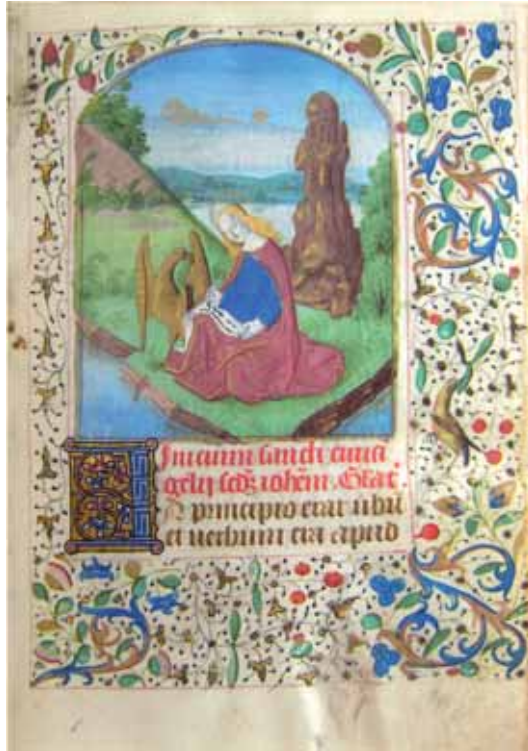 Inicium sancti euua
gelij scdʒ iohēm. Glār.
In principio erat uerbū
et uerbum erat apud